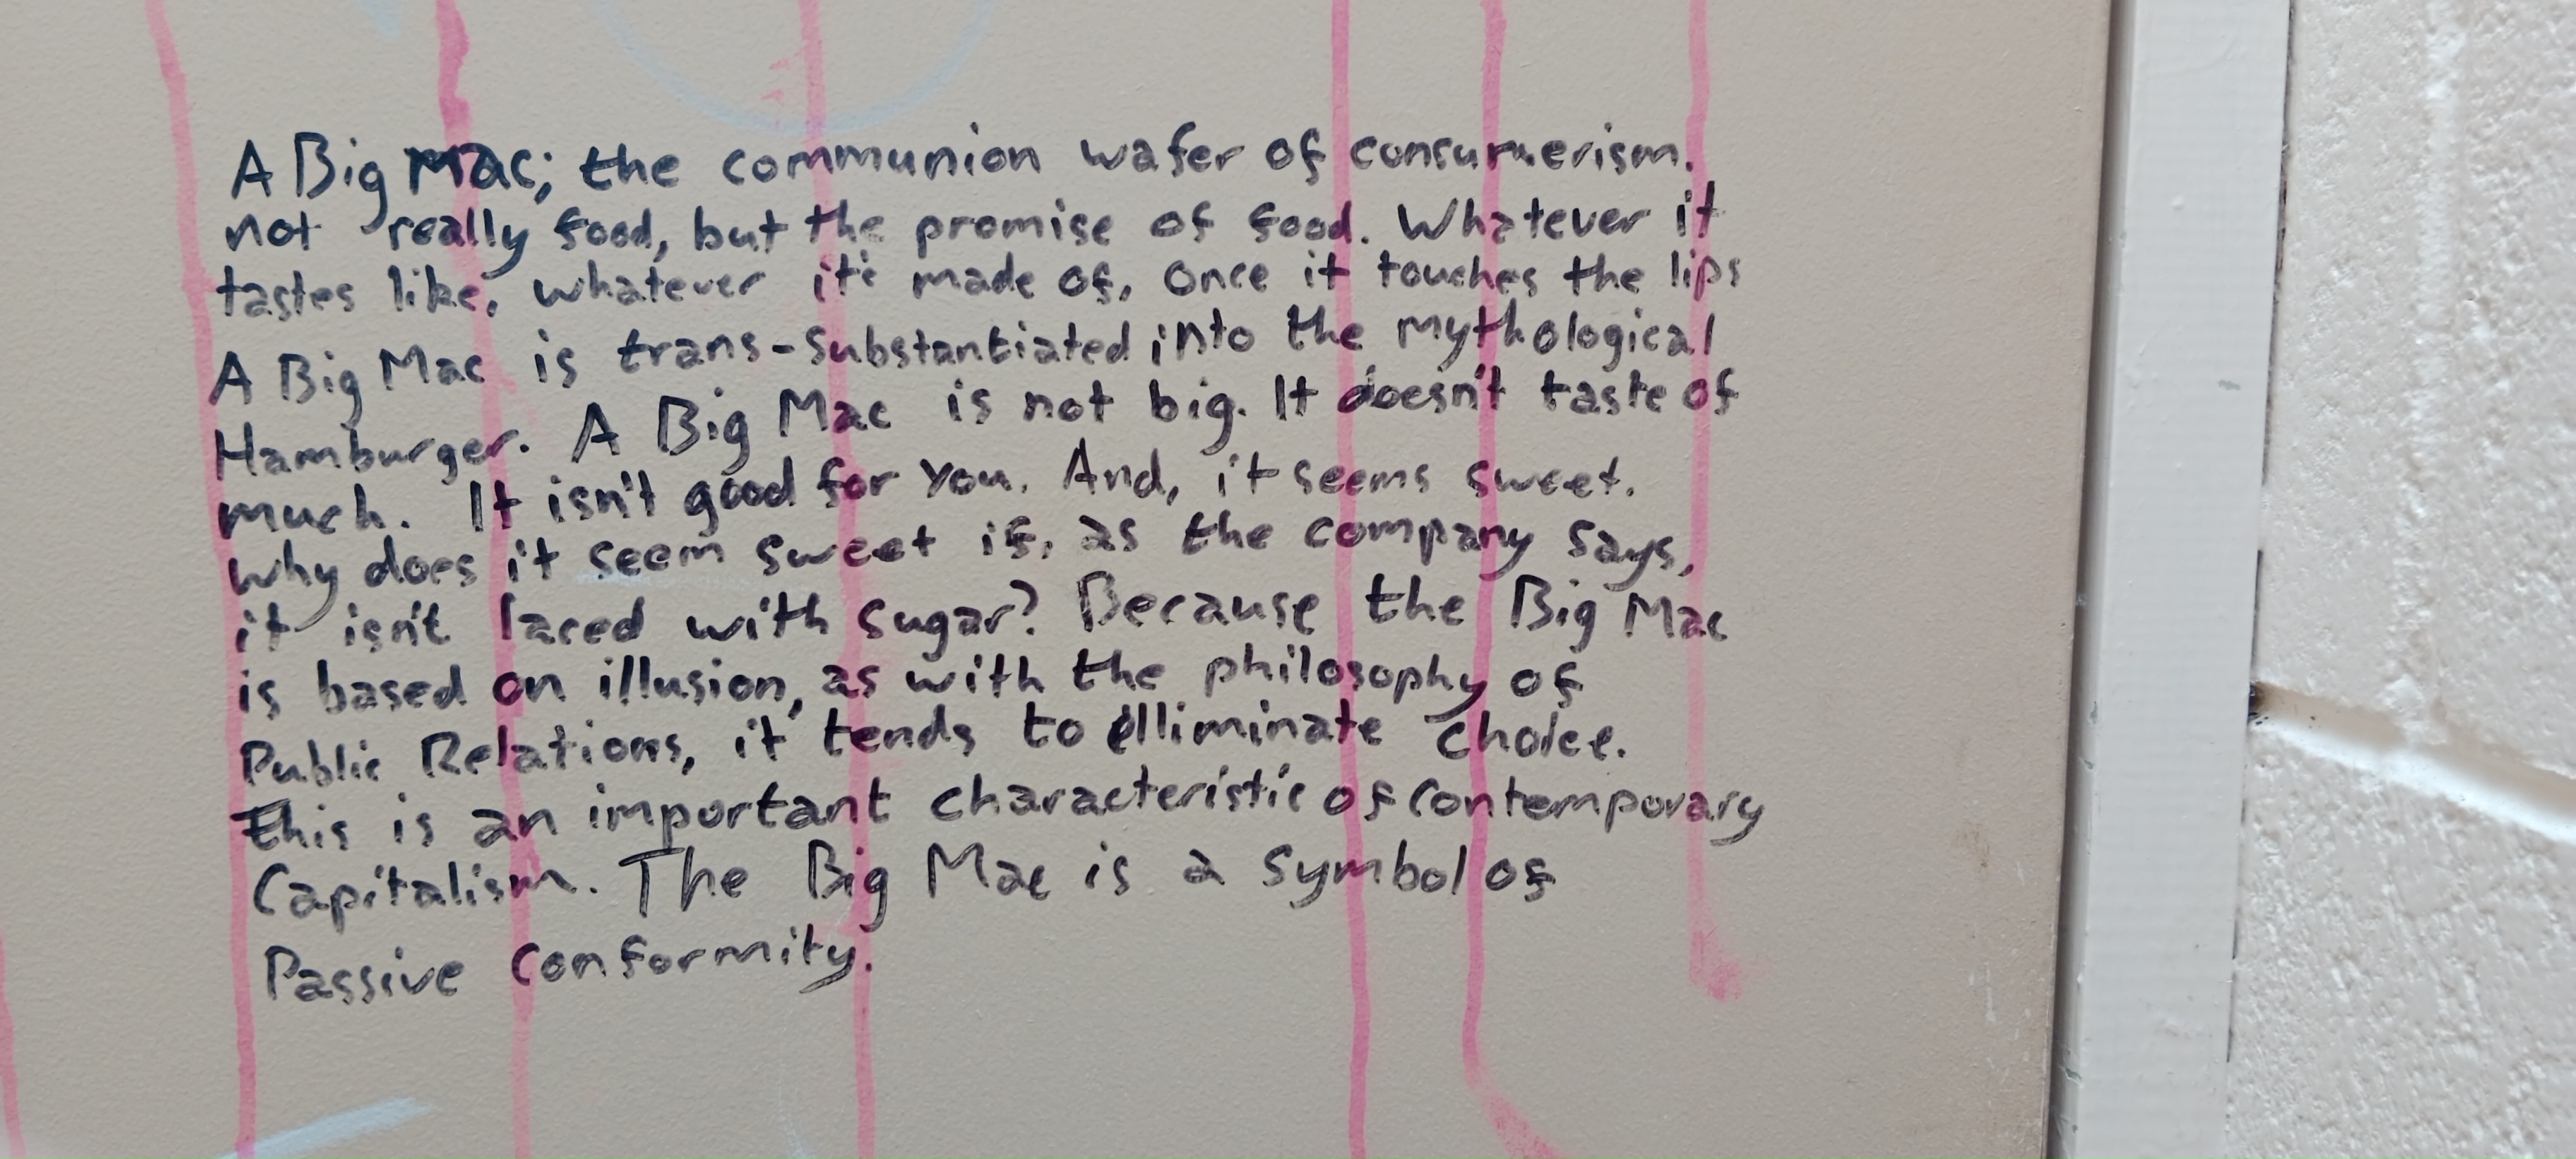 A Big Mac; the communion wafer of consumerism.
not really food, but the promise of food. Whatever it
tastes like, whatever it's made of, once it touches the lips
A Big Mac is trans-substantiated into the mythological
Hamburger. A Big Mac is not big. It doesn't taste of
much. It isn't good for you. And, it seems sweet.
why does it seem sweet if, as the company says,
it isn't laced with sugar? Because the Big Mac
is based on illusion, as with the philosophy of
Public Relations, it tends to elliminate choice.
This is an important characteristic of contemporary
Capitalism. The Big Mac is a symbol of
Passive conformity.